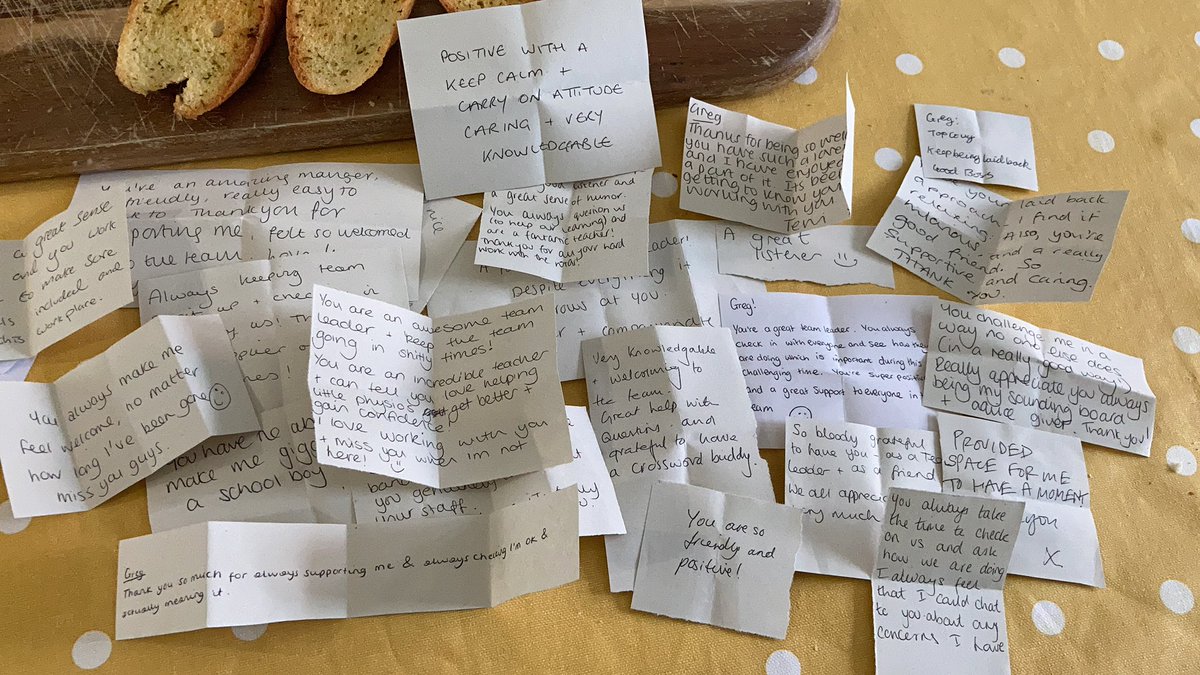 POSITIVE WITH A
KEEP CALM +
CARRY ON ATTITUDE
CARING + VERY
KNOWLEDGABLE
Greg
Thanks for being so
you have such a
and I have enjoyed
a part of it. Its been
getting to know you
working with you
Greg:
Keep being laid back
Good Boy
laid back
I find it
Also, you're
and a really
good friend. So
supportive and caring.
THANK you.
I've an amazing manger.
friendly, really easy to
to. Thank you for
me, felt so welcomed
the team
a great sense
and you work
to make sure
included and
workplace.
listener and
a great sense of humor.
You always question us
(to help our learning) and
are a fantastic teacher!
Thank you for all your hard
work with the
A great
listener
Always keeping team
Despite everything it
at you.
You are an awesome team
leader + keep the team
going in shitty times!
You are an incredible teacher
+ can tell you love helping
little physios get better +
gain confidence
I love working with you
+ miss you when im not
here!
Greg!
You're a great team leader. You always
check in with everyone and see how they
are doing which is important during this
challenging time. You're super positive
and a great support to everyone in the
team
You challenge me in a
way no one else does
(in a really good way)
Really appreciate you always
being my sounding board
+ advice giver. Thank you
Very Knowledgable
+ welcoming to
the team.
Great help with
and
grateful to have
a crossword buddy.
always make me
feel welcome, no matter
how long I've been gone
miss you guys.
You have
make me
a school boy
you genuinely
your staff.
So bloody grateful
to have you as a Team
leader + as a friend
We all
very much
PROVIDED
SPACE FOR ME
TO HAVE A MOMENT
you
X
You are so
friendly and
positive!
You always take
the time to check
on us and ask
how we are doing
I always feel
that I could chat
to you about any
concerns I have
Greg
Thank you so much for always supporting me & always checking I'm ok &
actually meaning it.